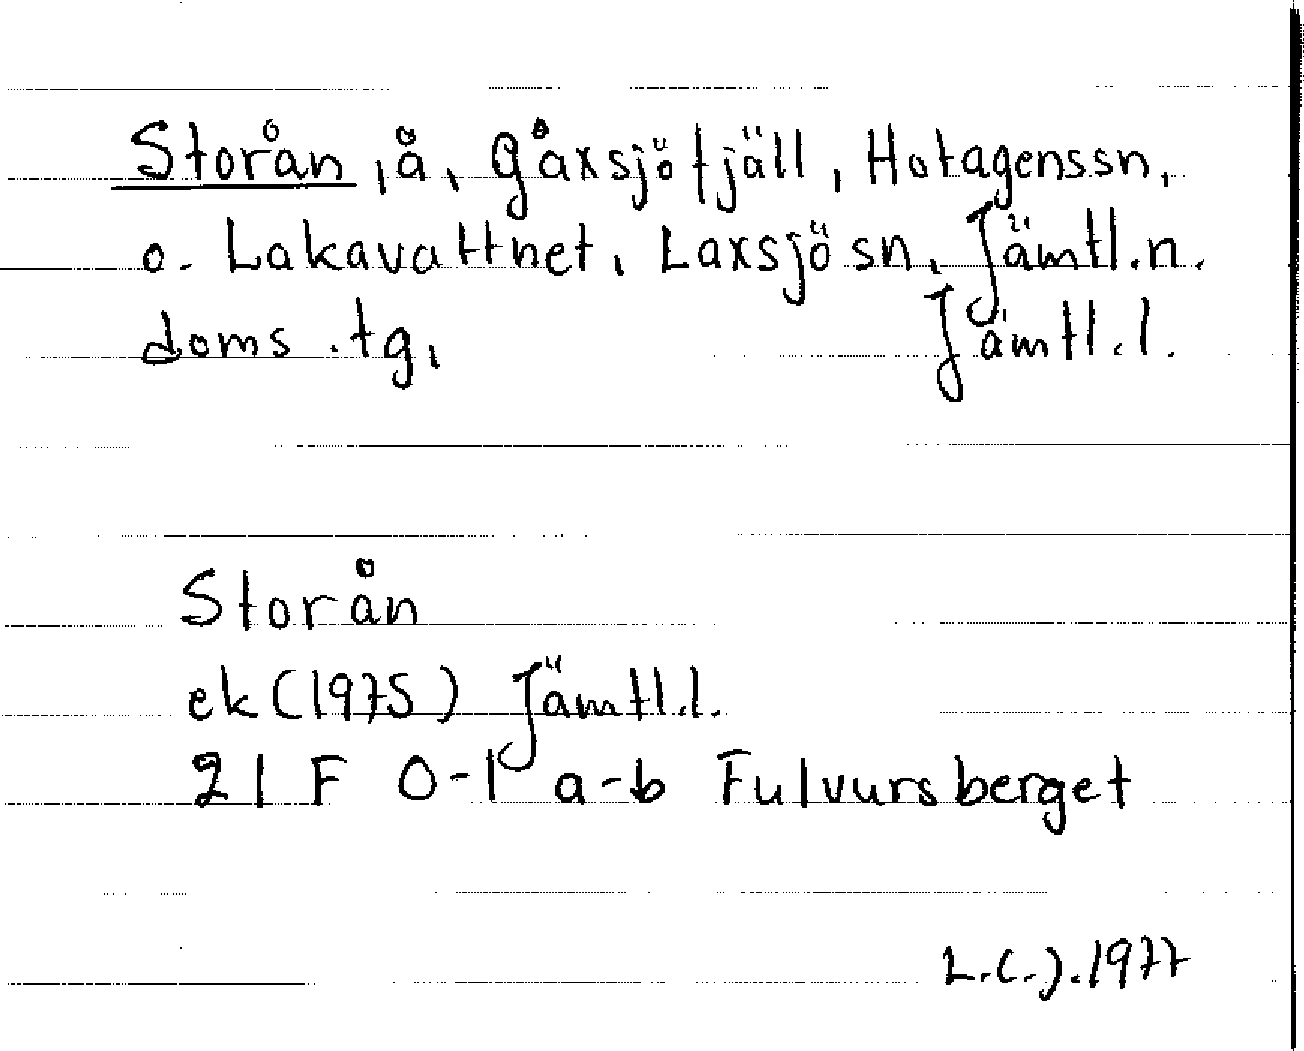 Storån, å, Gåxsjöfjäll, Hotagens sn,
o. Lakavattnet, Laxsjö sn, Jämtl.n.
doms.tg, Jämtl.l.
Storån
ek (1975) Jämtl.l.
21 F 0-1 a-b Fulvursberget
L.C.J. 1977